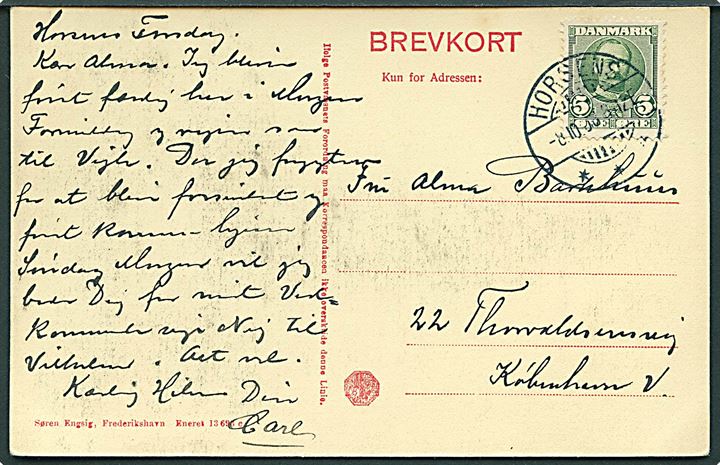 Horsens Torsdag.
Kære Alma. Jeg bliver
først færdig her i Morgen
Formiddag og rejser saa
til Vejle. Da jeg frygter
for at blive forsinket og
først komme hjem
Søndag Morgen vil jeg
bede Dig for mit Ved-
kommende sige Nej til
Vilhelm. Alt vel.
Kærlig Hilsen Din
Carl
Søren Engsig, Frederikshavn Eneret 13
Ifølge Postvæsnets Forordning maa Korrespondancen ikke overskride denne Linie.
BREVKORT
Kun for Adressen:
DANMARK
5 5
ØRE ØRE
HORSENS
Fru Alma Barkhuus
22 Thorvaldsensvej
København V.